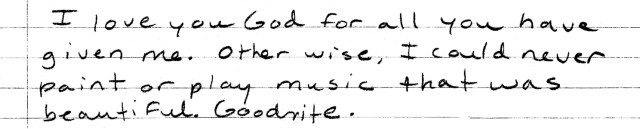 I love you God for all you have
given me. Other wise, I could never
paint or play music that was
beautiful. Goodnite.